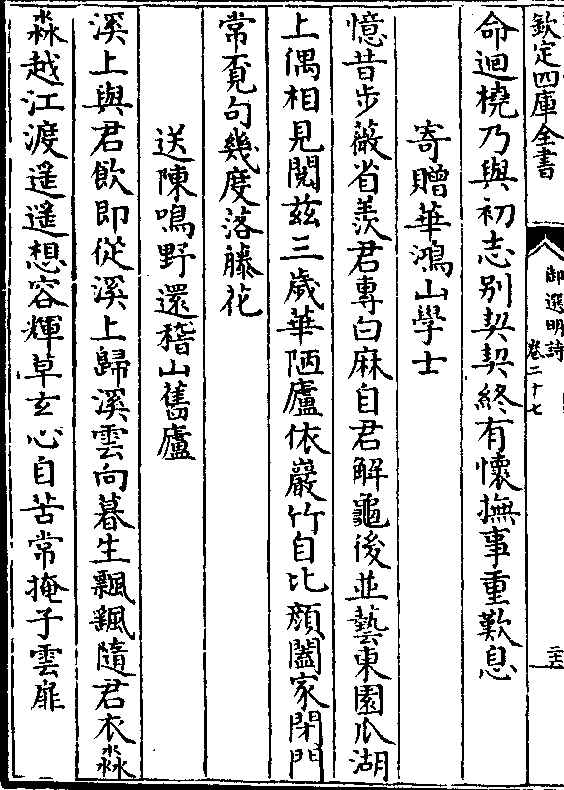 欽定四庫全書
御選明詩
卷二十七
命迴橈乃與初志別契契終有懷撫事重歎息
寄贈華鴻山學士
憶昔步薇省羡君專白麻自君解龜後並藝東園瓜湖
上偶相見閱兹三歲華陋廬依巖竹自比顔闔家閉門
常覓句幾度落藤花
送陳鳴野還稽山舊廬
溪上與君飲即從溪上歸溪雲向暮生飄颻隨君衣淼
淼越江渡遥遥想容輝草玄心自苦常掩子雲扉